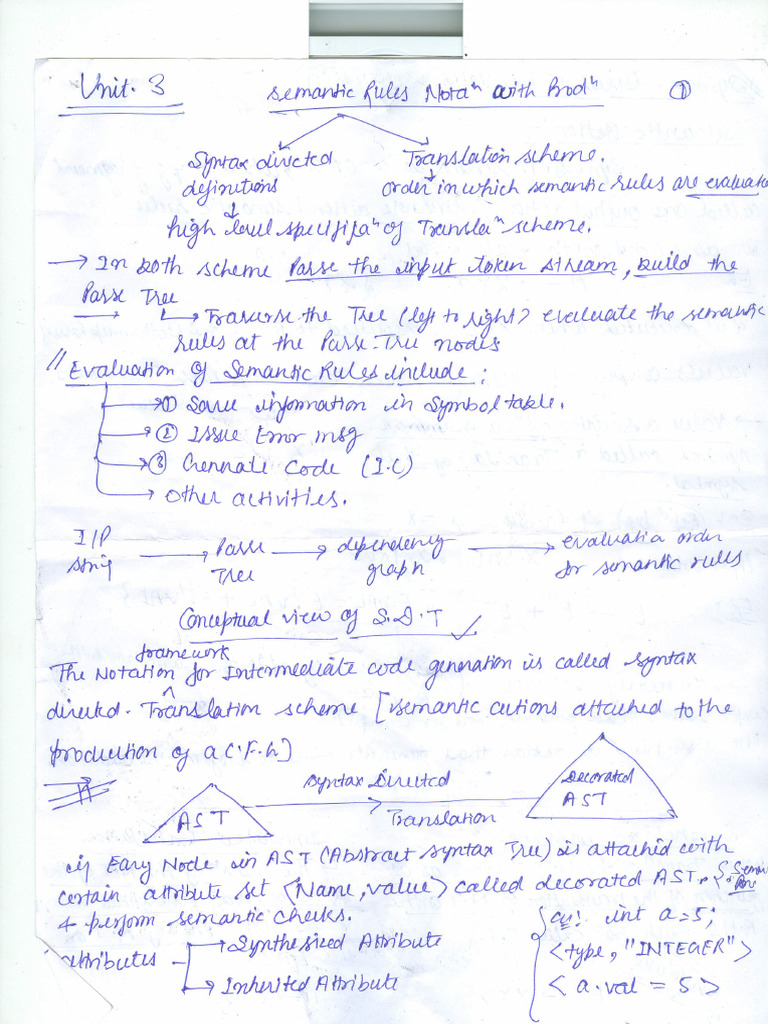 Unit. 3
Semantic Rules Notaⁿ with Prodⁿ ①
Syntax directed definitions
Translation scheme.
order in which semantic rules are evaluate
high level specifi Ⴈaⁿ of Translaⁿ scheme.
→ In both scheme Parse the input token stream, build the
Parse Tree
↳ Traverse the Tree (left to right) evaluate the semantic
rules at the Parse-Tree nodes
// Evaluation of Semantic Rules include;
→ ① Save information in Symbol table.
→ ② Issue Error msg
→ ③ Generate Code (I.C)
→ Other activities.
I/P string → Parse Tree → dependency graph → evaluatia order for semantic rules
Conceptual view of S.D.T ✓
framework
The Notation for Intermediate code generation is called syntax
directed. Translation scheme [semantic actions attached to the
production of a C.F.G]
AST
Syntax Directed
Translation
Decorated AST
if Eary Node in AST (Abstract Syntax Tree) is attached with
certain attribute set <Name, value> called decorated AST.
& perform semantic checks.
attributes
→ Synthesized Attribute
→ Inherited Attribute
int a=5;
<type, "INTEGER">
<a.val = 5>